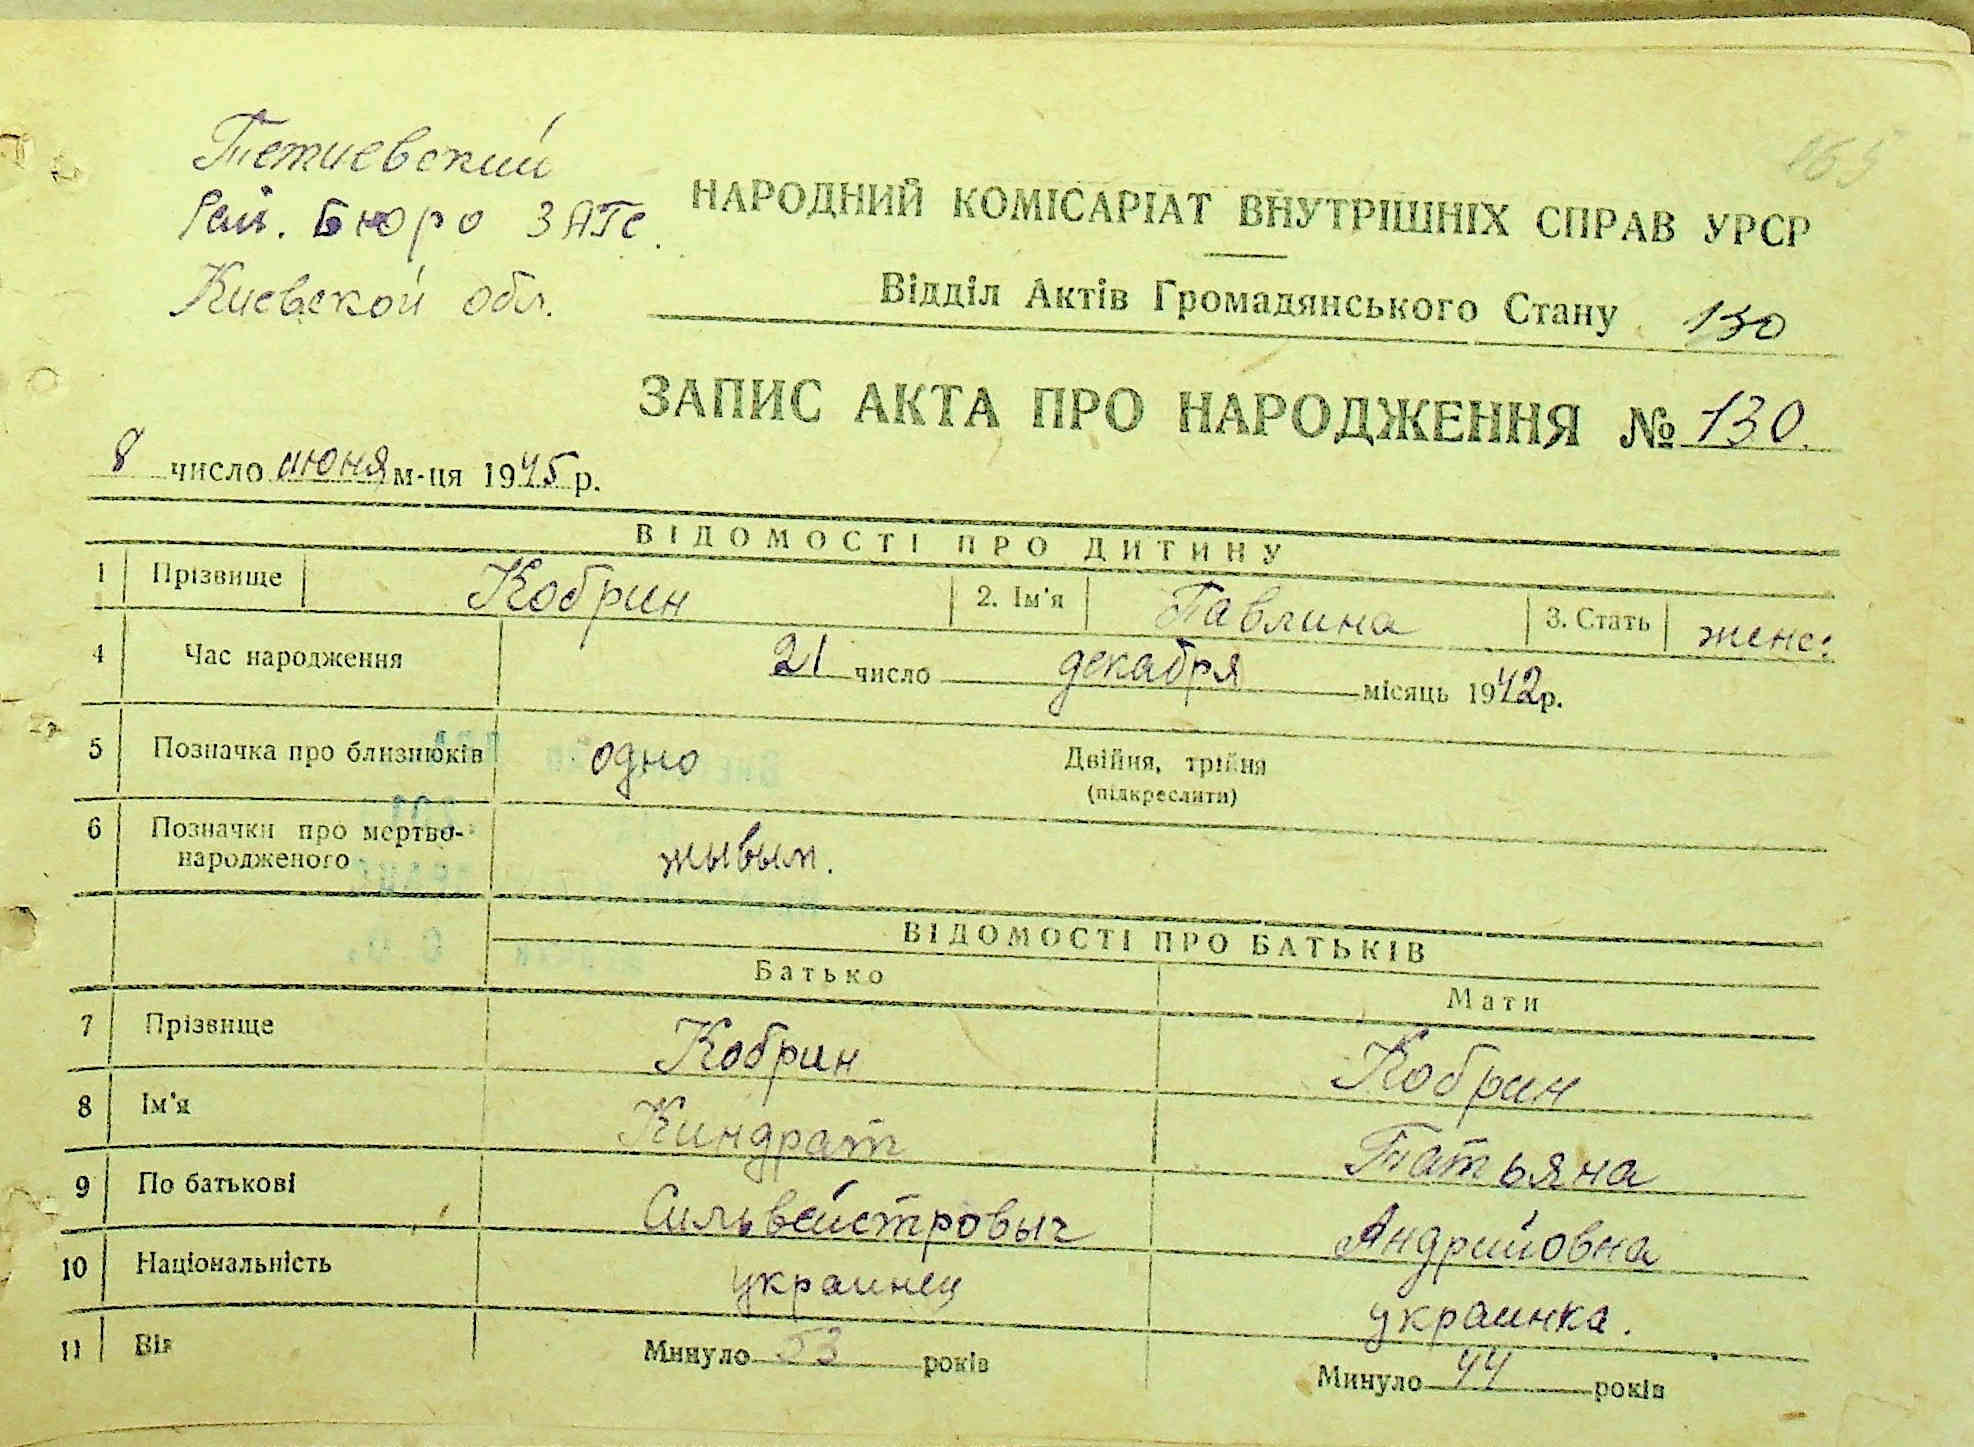 165
Тетиевский
Рай. Бюро ЗАГС.
Киевской обл.
НАРОДНИЙ КОМІСАРІАТ ВНУТРІШНІХ СПРАВ УРСР
Відділ Актів Громадянського Стану 130
ЗАПИС АКТА ПРО НАРОДЖЕННЯ № 130.
8 число июня м-ця 1945 р.
ВІДОМОСТІ ПРО ДИТИНУ
1 Прізвище Кобрин 2. Ім'я Павлина 3. Стать женс:
4 Час народження 21 число декабря місяць 1942 р.
5 Позначка про близнюків одно Двійня, трійня
(підкреслити)
6 Позначки про мертво-
народженого жывым.
ВІДОМОСТІ ПРО БАТЬКІВ
Батько Мати
7 Прізвище Кобрин Кобрин
8 Ім'я Киндрат Татьяна
9 По батькові Сильвейстровыч Андрийовна
10 Національність украинец украинка.
11 Вік Минуло 53 років Минуло 44 років